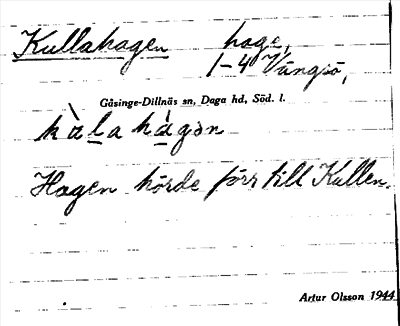 Kullahagen hage,
1-4 Vängsö,
Gåsinge-Dillnäs sn, Daga hd, Söd. l.
Hagen hörde förr till Kullen.
Artur Olsson 1944